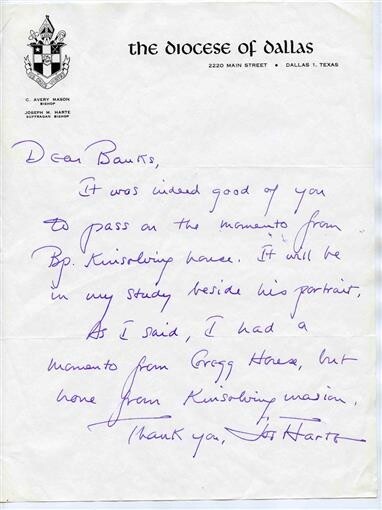 the diocese of dallas
2220 MAIN STREET • DALLAS 1, TEXAS
C. AVERY MASON
BISHOP
JOSEPH M. HARTE
SUFFRAGAN BISHOP
Dear Banks,
It was indeed good of you
to pass on the momento from
Bp. Kinsolving house. It will be
in my study beside his portrait.
As I said, I had a
momento from Gregg House, but
none from Kinsolving
Thank you, Harte